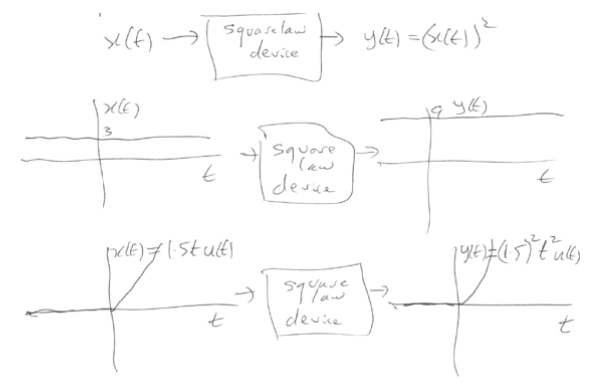 x(t) → square law device → y(t) = (x(t))²
x(t)
3
t
square law device
9 y(t)
t
x(t) = 1.5t u(t)
t
square law device
y(t) = (1.5)² t² u(t)
t